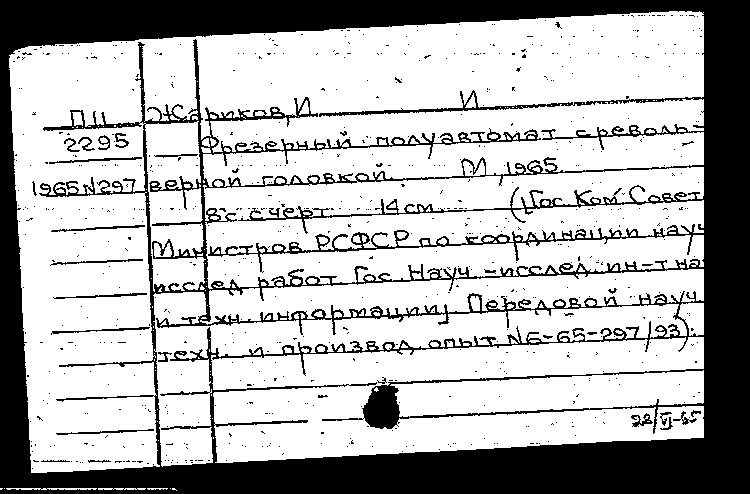 П11 Жариков, И И
2295 Фрезерный полуавтомат с револь-
1965 N297 верной головкой. М., 1965.
8 с. с черт. 14 см. ([Гос. Ком. Совет
Министров РСФСР по координации науч
исслед. работ. Гос. Науч.-исслед. ин-т на
и техн. информации] Передовой науч
техн. и производ. опыт. N6-65-297/93).
22/VI-65